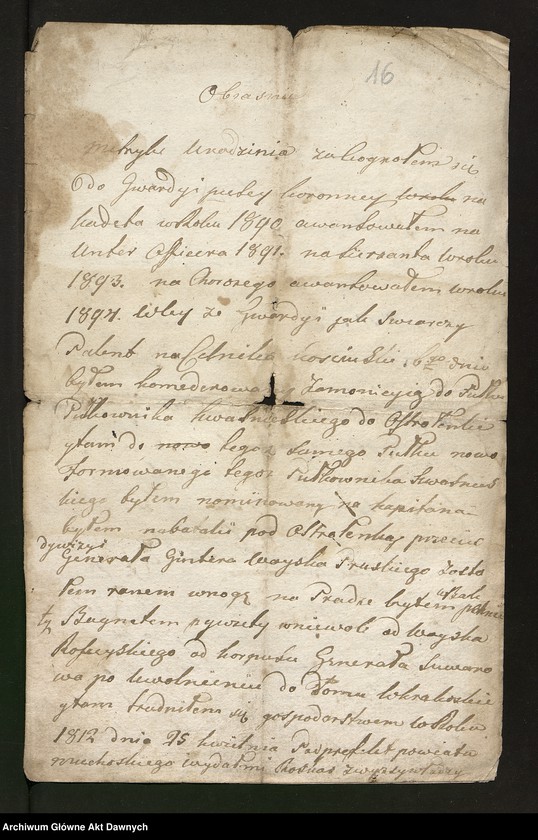 16
metryki urodzinia zaciognołem się
do Gwardyi pieszey koronney wroku na
kadeta wRoku 1890 awansowałem na
Unter Officera 1891. na sierzanta wroku
1893. na Chorozego awansowałem wroku
1894. tey ze Gwardyi jak swiarczy
Patent naCzelnika Kosciuszki 16go dnia
byłem komederowany z Amonicyią do Pułku
Pułkownika Kwasniewskiego do Ostrołenki
y tam do nowo tegoz samego Pułku nowo
Formowanego tegoz Pułkownika Kwasniews
kiego byłem nominowany na kapitana
byłem nabatalii pod Ostrołenką przeciw
dywizyi
Generała Gintera Wayska Pruskiego zosta
łem ranem wnogę na Pradze byłem pchnię
ty Bagnetem y wzięty wniewole od Wayska
Rossyiskiego od korpusu Generała Suwaro
wa po uwolnieniu do domu wkrakoskie
y tam trudniłem się gospodarstwem wRoku
1812 dnia 25 kwitnia Podprefekt powiatu
miechoskiego wydał mi Roskas
Archiwum Główne Akt Dawnych